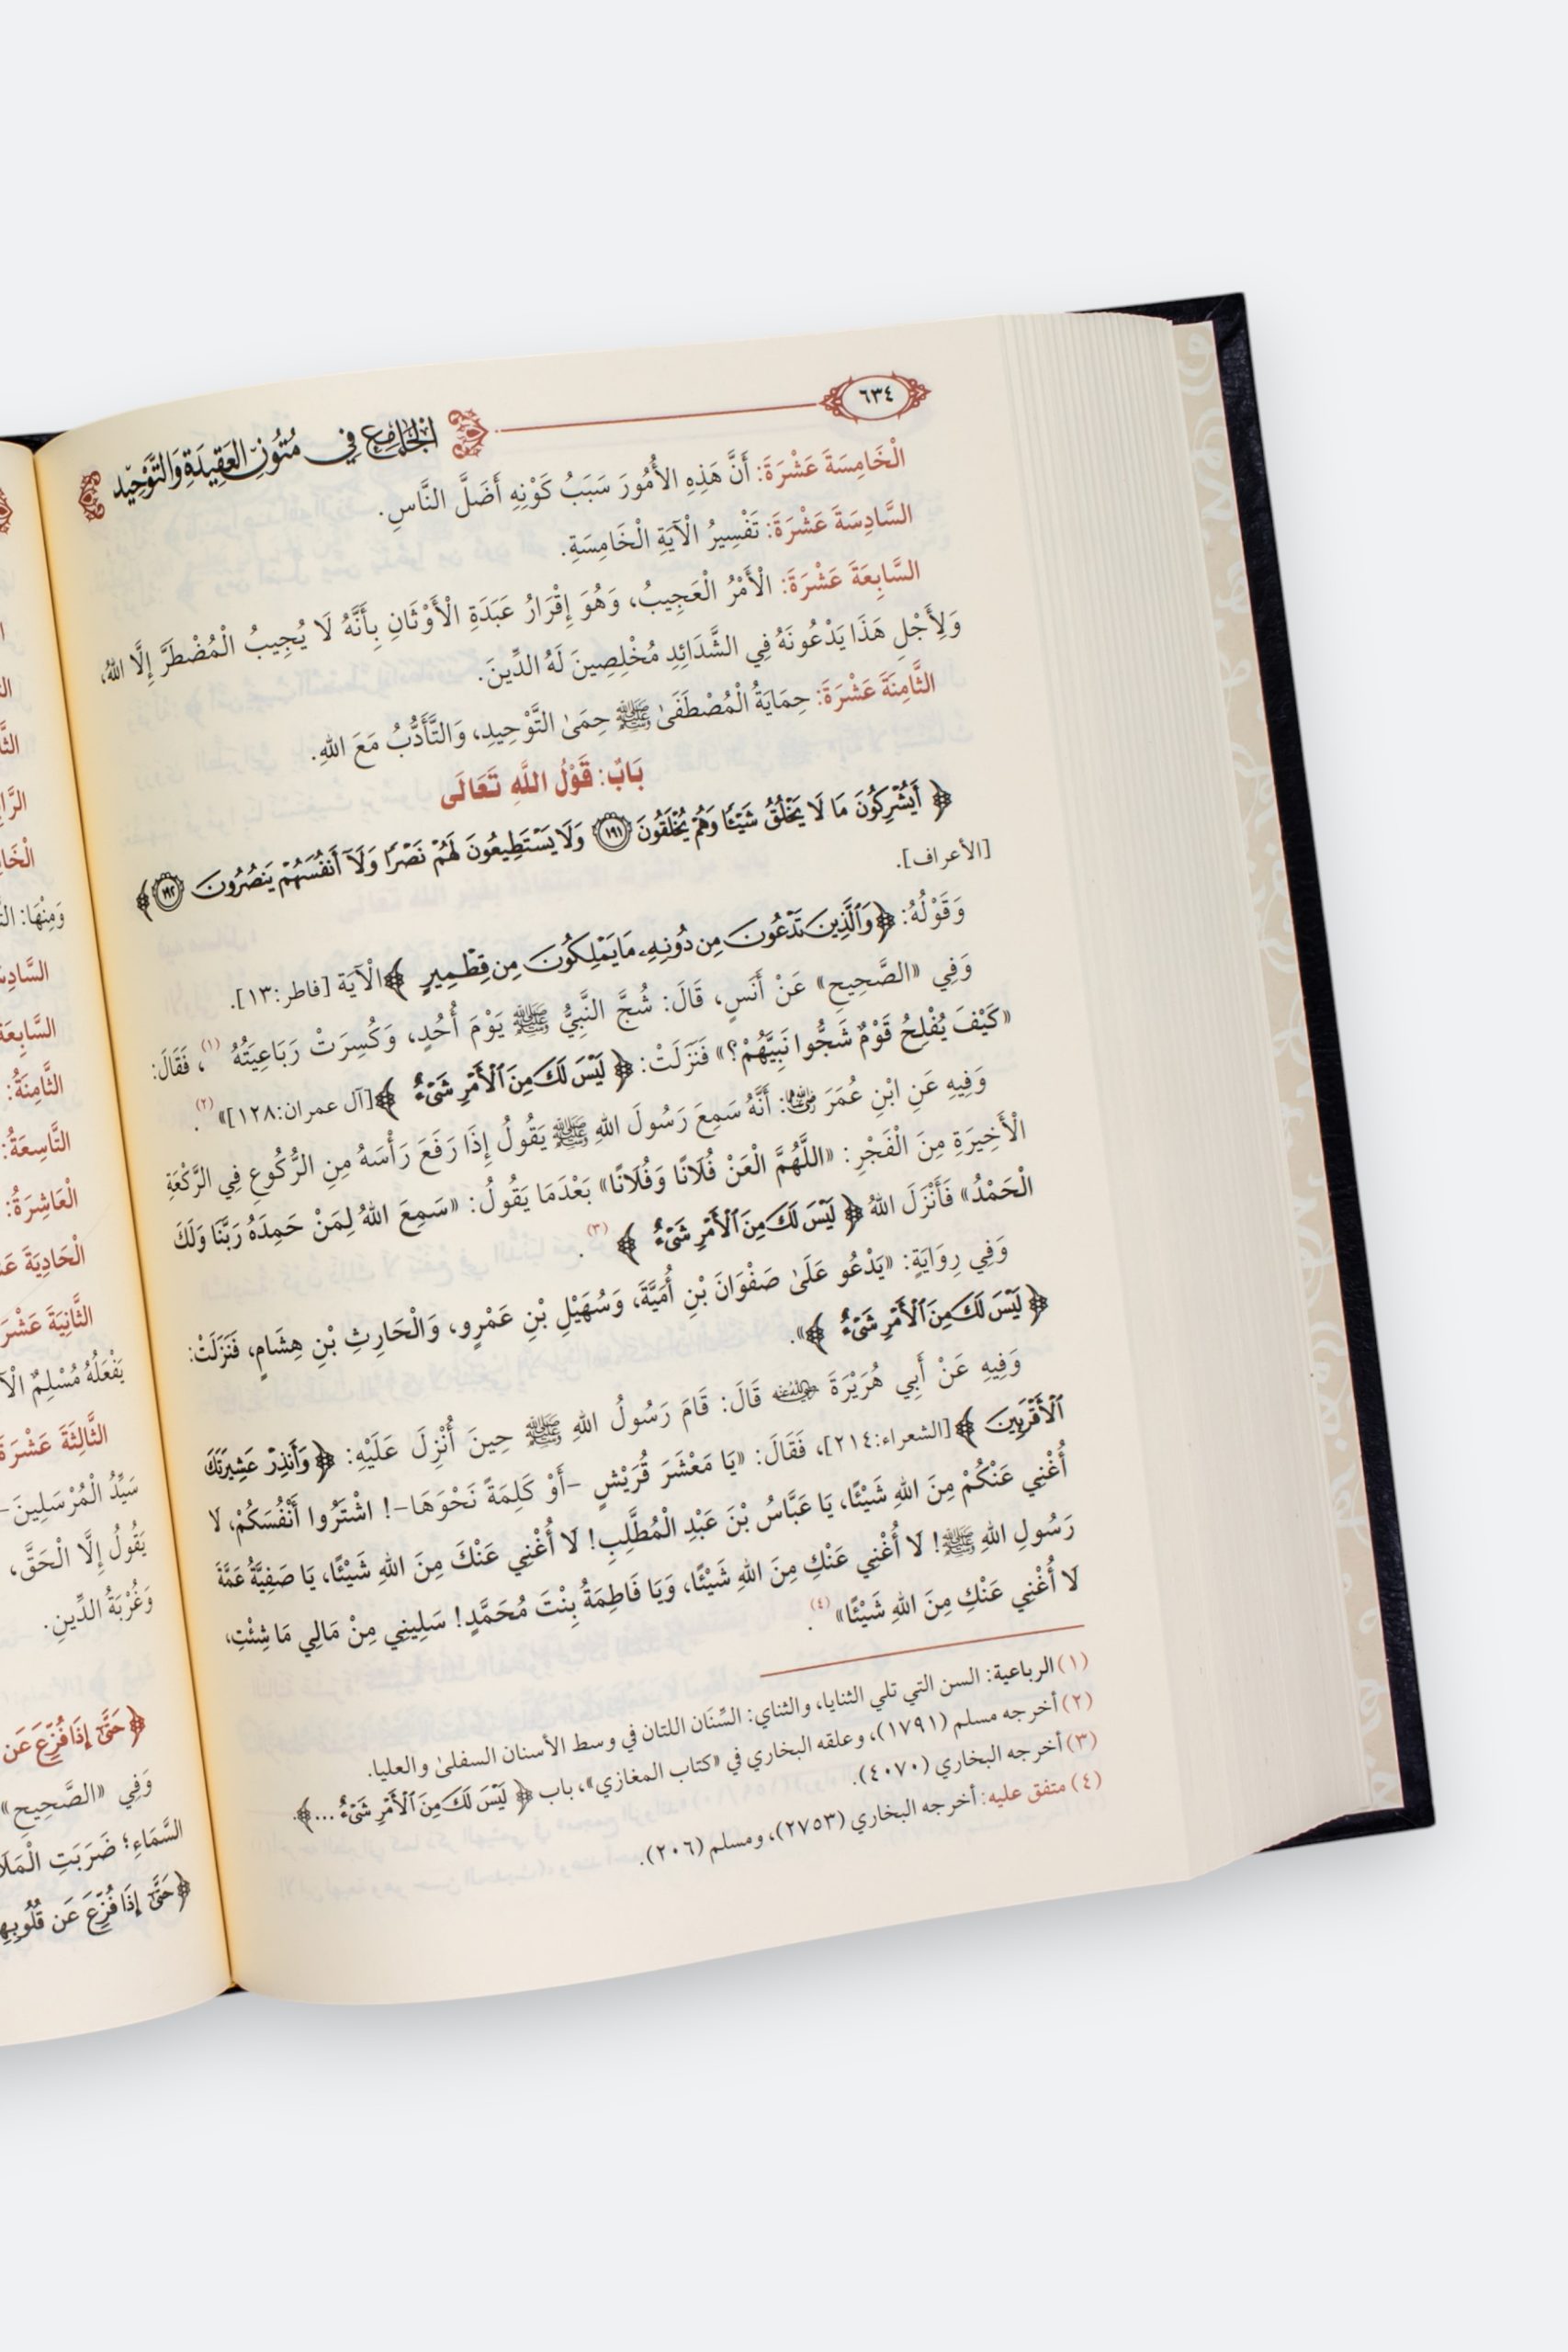 ٦٣٤
الجامع في متون العقيدة والتوحيد
الْخَامِسَةَ عَشْرَةَ: أَنَّ هَذِهِ الأُمُورَ سَبَبُ كَوْنِهِ أَضَلَّ النَّاسِ.
السَّادِسَةَ عَشْرَةَ: تَفْسِيرُ الْآيَةِ الْخَامِسَةِ.
السَّابِعَةَ عَشْرَةَ: الْأَمْرُ الْعَجِيبُ، وَهُوَ إِقْرَارُ عَبَدَةِ الْأَوْثَانِ بِأَنَّهُ لَا يُجِيبُ الْمُضْطَرَّ إِلَّا اللهُ،
وَلِأَجْلِ هَذَا يَدْعُونَهُ فِي الشَّدَائِدِ مُخْلِصِينَ لَهُ الدِّينَ.
الثَّامِنَةَ عَشْرَةَ: حِمَايَةُ الْمُصْطَفَىٰ ﷺ حِمَىٰ التَّوْحِيدِ، وَالتَّأَدُّبُ مَعَ اللهِ.
بَابٌ: قَوْلُ اللَّهِ تَعَالَى
﴿أَيُشْرِكُونَ مَا لَا يَخْلُقُ شَيْئًا وَهُمْ يُخْلَقُونَ ١٩١ وَلَا يَسْتَطِيعُونَ لَهُمْ نَصْرًا وَلَآ أَنفُسَهُمْ يَنصُرُونَ ١٩٢﴾
[الأعراف].
وَقَوْلُهُ: ﴿وَٱلَّذِينَ تَدْعُونَ مِن دُونِهِۦ مَا يَمْلِكُونَ مِن قِطْمِيرٍ﴾ الْآيَة [فاطر:١٣].
وَفِي «الصَّحِيحِ» عَنْ أَنَسٍ، قَالَ: شُجَّ النَّبِيُّ ﷺ يَوْمَ أُحُدٍ، وَكُسِرَتْ رَبَاعِيَتُهُ (١)، فَقَالَ:
«كَيْفَ يُفْلِحُ قَوْمٌ شَجُّوا نَبِيَّهُمْ؟» فَنَزَلَتْ: ﴿لَيْسَ لَكَ مِنَ ٱلْأَمْرِ شَىْءٌ﴾ [آل عمران:١٢٨]» (٢).
وَفِيهِ عَنِ ابْنِ عُمَرَ رضي الله عنهما: أَنَّهُ سَمِعَ رَسُولَ اللهِ ﷺ يَقُولُ إِذَا رَفَعَ رَأْسَهُ مِنِ الرُّكُوعِ فِي الرَّكْعَةِ
الْأَخِيرَةِ مِنَ الْفَجْرِ: «اللَّهُمَّ الْعَنْ فُلَانًا وَفُلَانًا» بَعْدَمَا يَقُولُ: «سَمِعَ اللهُ لِمَنْ حَمِدَهُ رَبَّنَا وَلَكَ
الْحَمْدُ» فَأَنْزَلَ اللهُ ﴿لَيْسَ لَكَ مِنَ ٱلْأَمْرِ شَىْءٌ﴾ (٣).
وَفِي رِوَايَةٍ: «يَدْعُو عَلَىٰ صَفْوَانَ بْنِ أُمَيَّةَ، وَسُهَيْلِ بْنِ عَمْرٍو، وَالْحَارِثِ بْنِ هِشَامٍ، فَنَزَلَتْ:
﴿لَيْسَ لَكَ مِنَ ٱلْأَمْرِ شَىْءٌ﴾».
وَفِيهِ عَنْ أَبِي هُرَيْرَةَ رضي الله عنه قَالَ: قَامَ رَسُولُ اللهِ ﷺ حِينَ أُنْزِلَ عَلَيْهِ: ﴿وَأَنذِرْ عَشِيرَتَكَ
ٱلْأَقْرَبِينَ﴾ [الشعراء:٢١٤]، فَقَالَ: «يَا مَعْشَرَ قُرَيْشٍ -أَوْ كَلِمَةً نَحْوَهَا-! اشْتَرُوا أَنْفُسَكُمْ، لا
أُغْنِي عَنْكُمْ مِنَ اللهِ شَيْئًا، يَا عَبَّاسُ بْنَ عَبْدِ الْمُطَّلِبِ! لَا أُغْنِي عَنْكَ مِنَ اللهِ شَيْئًا، يَا صَفِيَّةُ عَمَّةَ
رَسُولِ اللهِ ﷺ! لَا أُغْنِي عَنْكِ مِنَ اللهِ شَيْئًا، وَيَا فَاطِمَةُ بِنْتَ مُحَمَّدٍ! سَلِينِي مِنْ مَالِي مَا شِئْتِ،
لَا أُغْنِي عَنْكِ مِنَ اللهِ شَيْئًا» (٤).
(١) الرباعية: السن التي تلي الثنايا، والثناي: السِّنَان اللتان في وسط الأسنان السفلىٰ والعليا.
(٢) أخرجه مسلم (١٧٩١)، وعلقه البخاري في «كتاب المغازي»، باب ﴿لَيْسَ لَكَ مِنَ ٱلْأَمْرِ شَىْءٌ ...﴾.
(٣) أخرجه البخاري (٤٠٧٠).
(٤) متفق عليه: أخرجه البخاري (٢٧٥٣)، ومسلم (٢٠٦).
وَمِنْهَا:
الثَّامِنَةُ:
التَّاسِعَةُ:
الْعَاشِرَةُ:
الْحَادِيَةَ
الثَّانِيَةَ
يَفْعَلُهُ مُسْلِمٌ
الثَّالِثَةَ عَشْرَةَ
سَيِّدُ الْمُرْسَلِينَ-
يَقُولُ إِلَّا الْحَقَّ،
وَغُرْبَةُ الدِّينِ.
﴿حَتَّىٰٓ إِذَا فُزِّعَ عَن
وَفِي «الصَّحِيحِ»
السَّمَاءِ؛ ضَرَبَتِ
﴿حَتَّىٰٓ إِذَا فُزِّعَ عَن